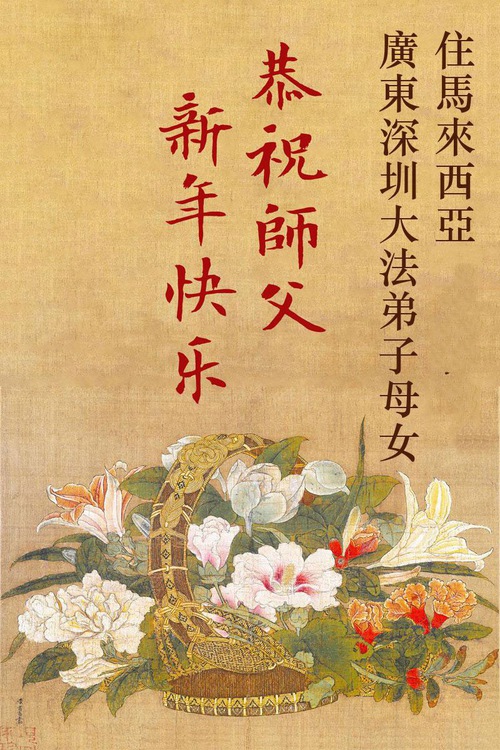 住馬來西亞
廣東深圳大法弟子母女
恭祝師父
新年快乐